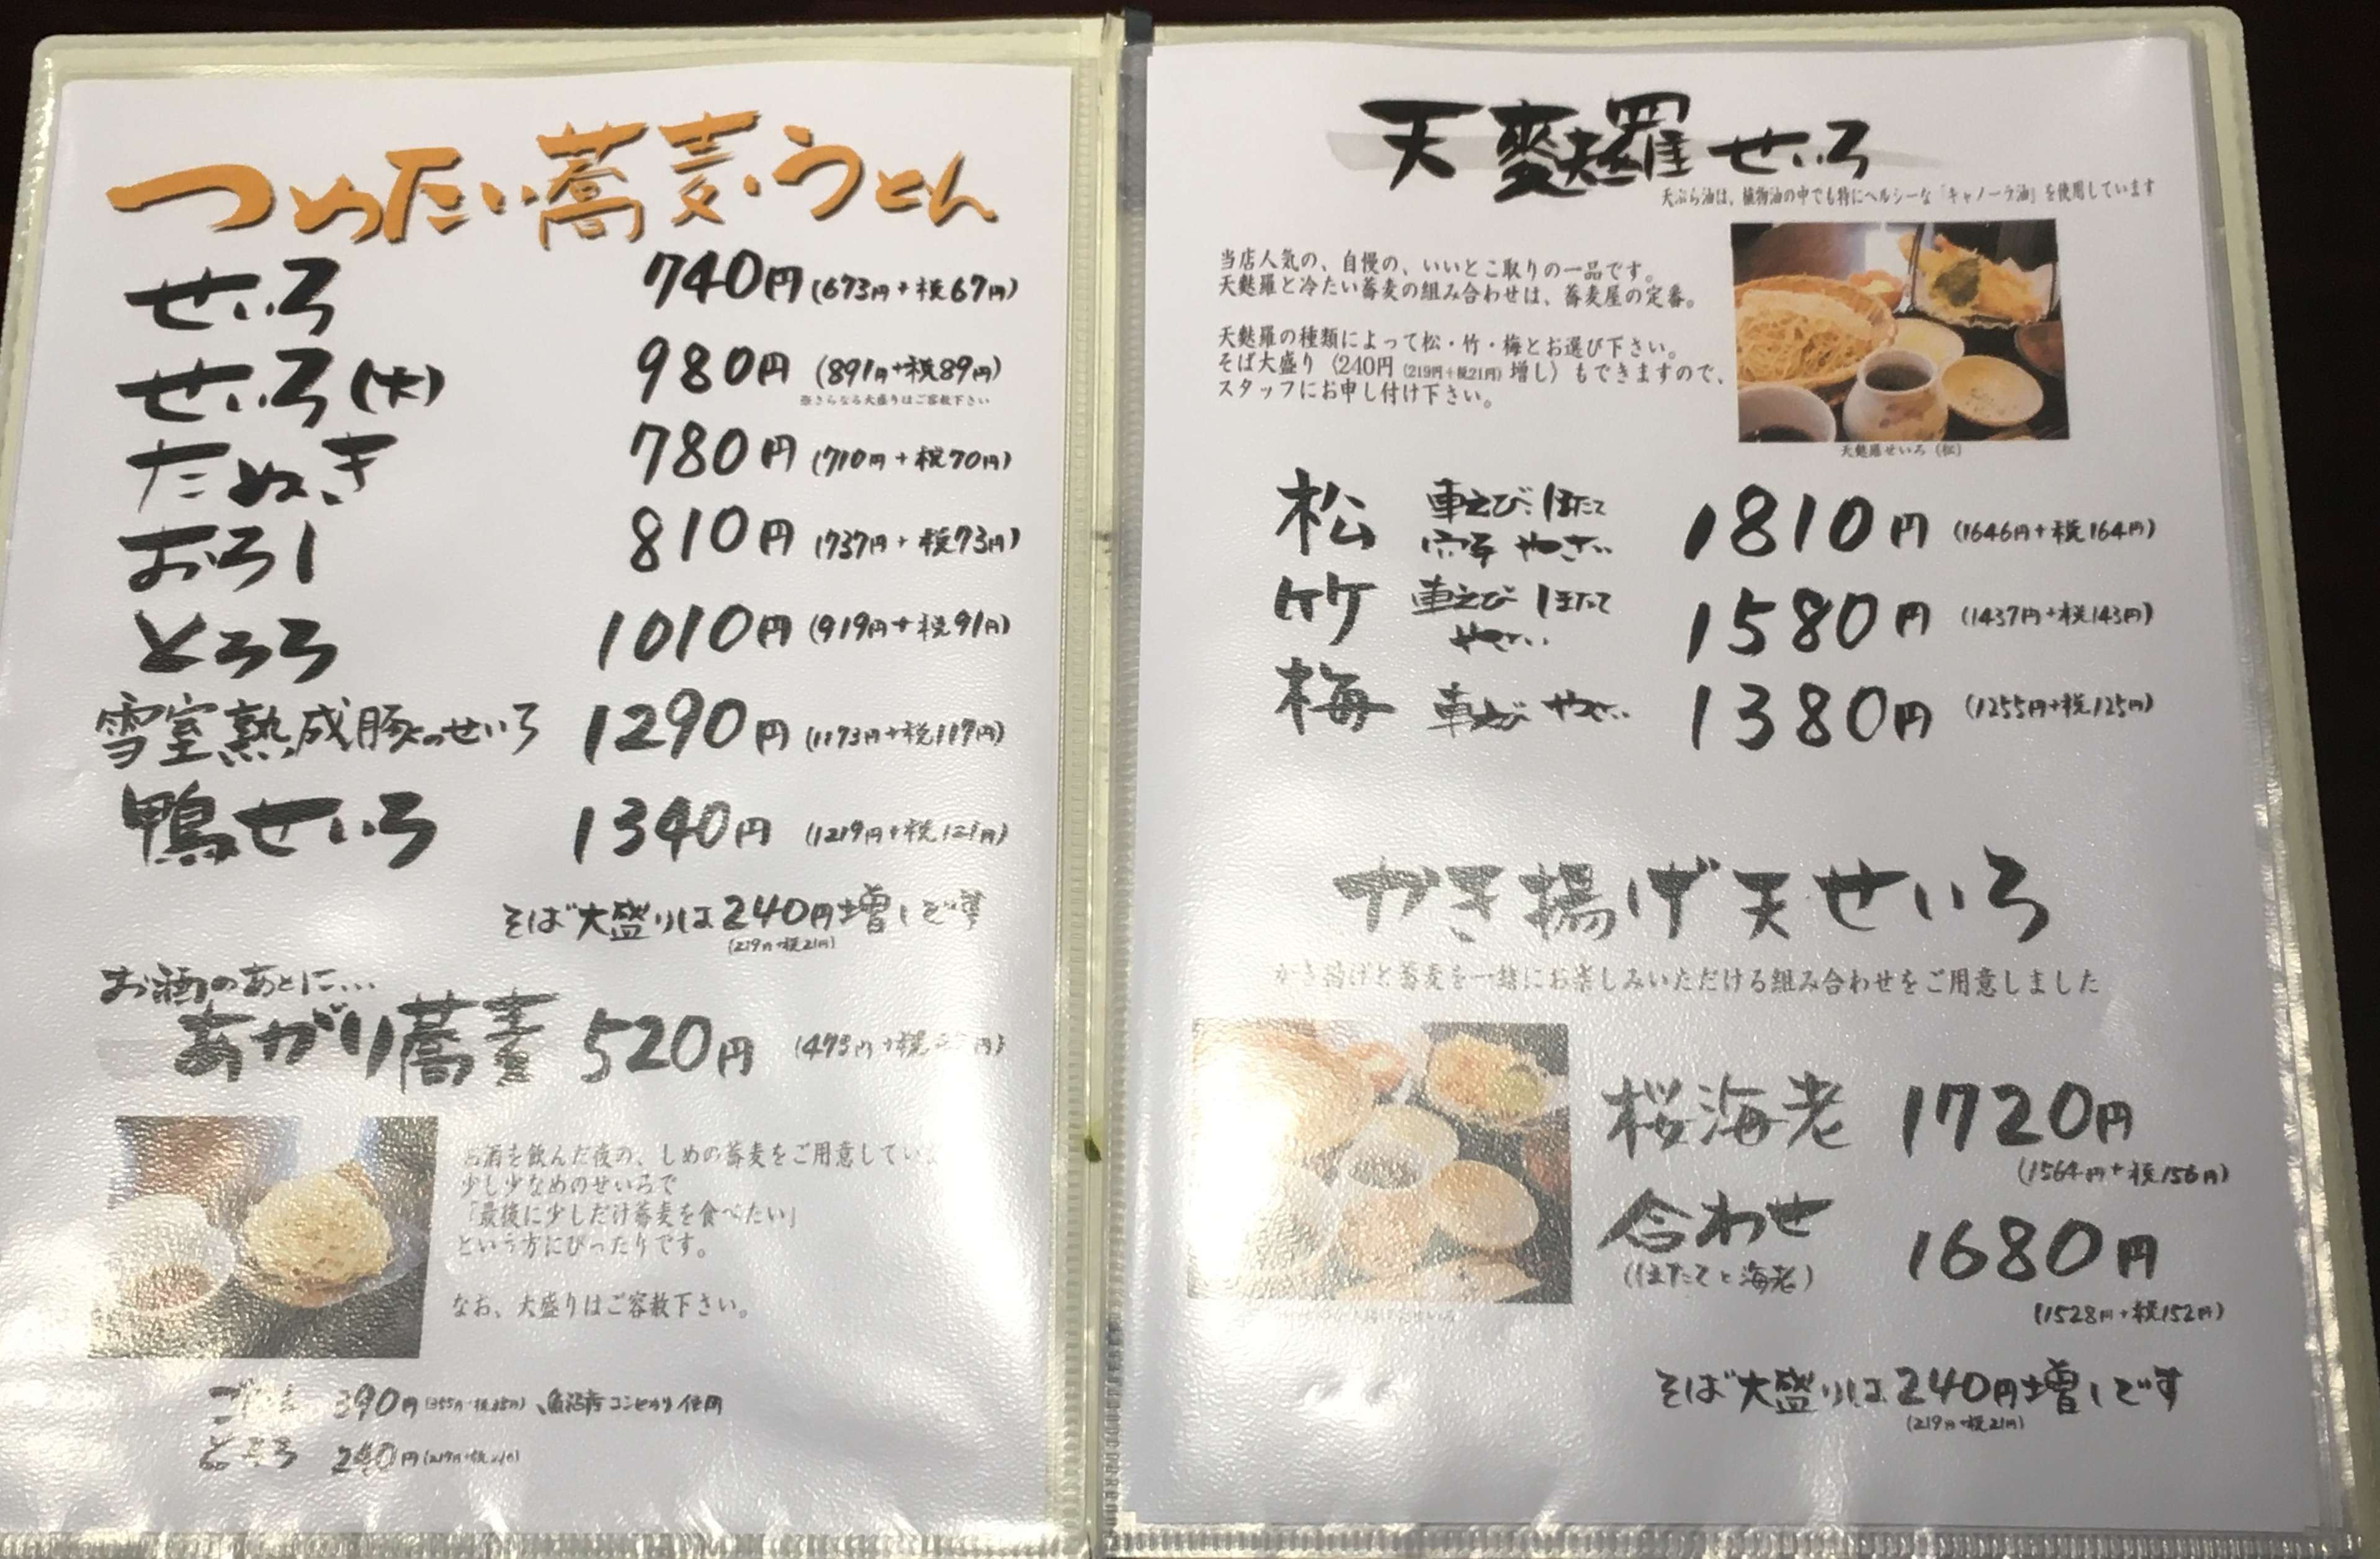 つめたい蕎麦・うどん
せいろ 740円 (673円+税67円)
せいろ(大) 980円 (891円+税89円)
※さらなる大盛りはご容赦下さい
たぬき 780円 (710円+税70円)
おろし 810円 (737円+税73円)
とろろ 1010円 (919円+税91円)
雪室熟成豚のせいろ 1290円 (1173円+税117円)
鴨せいろ 1340円 (1219円+税121円)
そば大盛りは240円増しです
(219円+税21円)
お酒のあとに…
あがり蕎麦 520円 (473円+税
お酒を飲んだ夜の、しめの蕎麦をご用意してい
少し少なめのせいろで
「最後に少しだけ蕎麦を食べたい」
という方にぴったりです。
なお、大盛りはご容赦下さい。
390円 魚沼産コシヒカリ使用
とろろ 240円 (219円+税21円)
天麩羅せいろ
天ぷら油は、植物油の中でも特にヘルシーな「キャノーラ油」を使用しています
当店人気の、自慢の、いいとこ取りの一品です。
天麩羅と冷たい蕎麦の組み合わせは、蕎麦屋の定番。
天麩羅の種類によって松・竹・梅とお選び下さい。
そば大盛り〈240円(219円+税21円)増し〉もできますので、
スタッフにお申し付け下さい。
天麩羅せいろ(松)
松 車えび・ほたて 1810円 (1646円+税164円)
穴子 やさい
竹 車えび ほたて 1580円 (1437円+税143円)
やさい
梅 車えび やさい 1380円 (1255円+税125円)
かき揚げ天せいろ
かき揚げと蕎麦を一緒にお楽しみいただける組み合わせをご用意しました
桜海老 1720円
(1564円+税156円)
合わせ 1680円
(ほたてと海老)
(1528円+税152円)
そば大盛りは240円増しです
(219円+税21円)